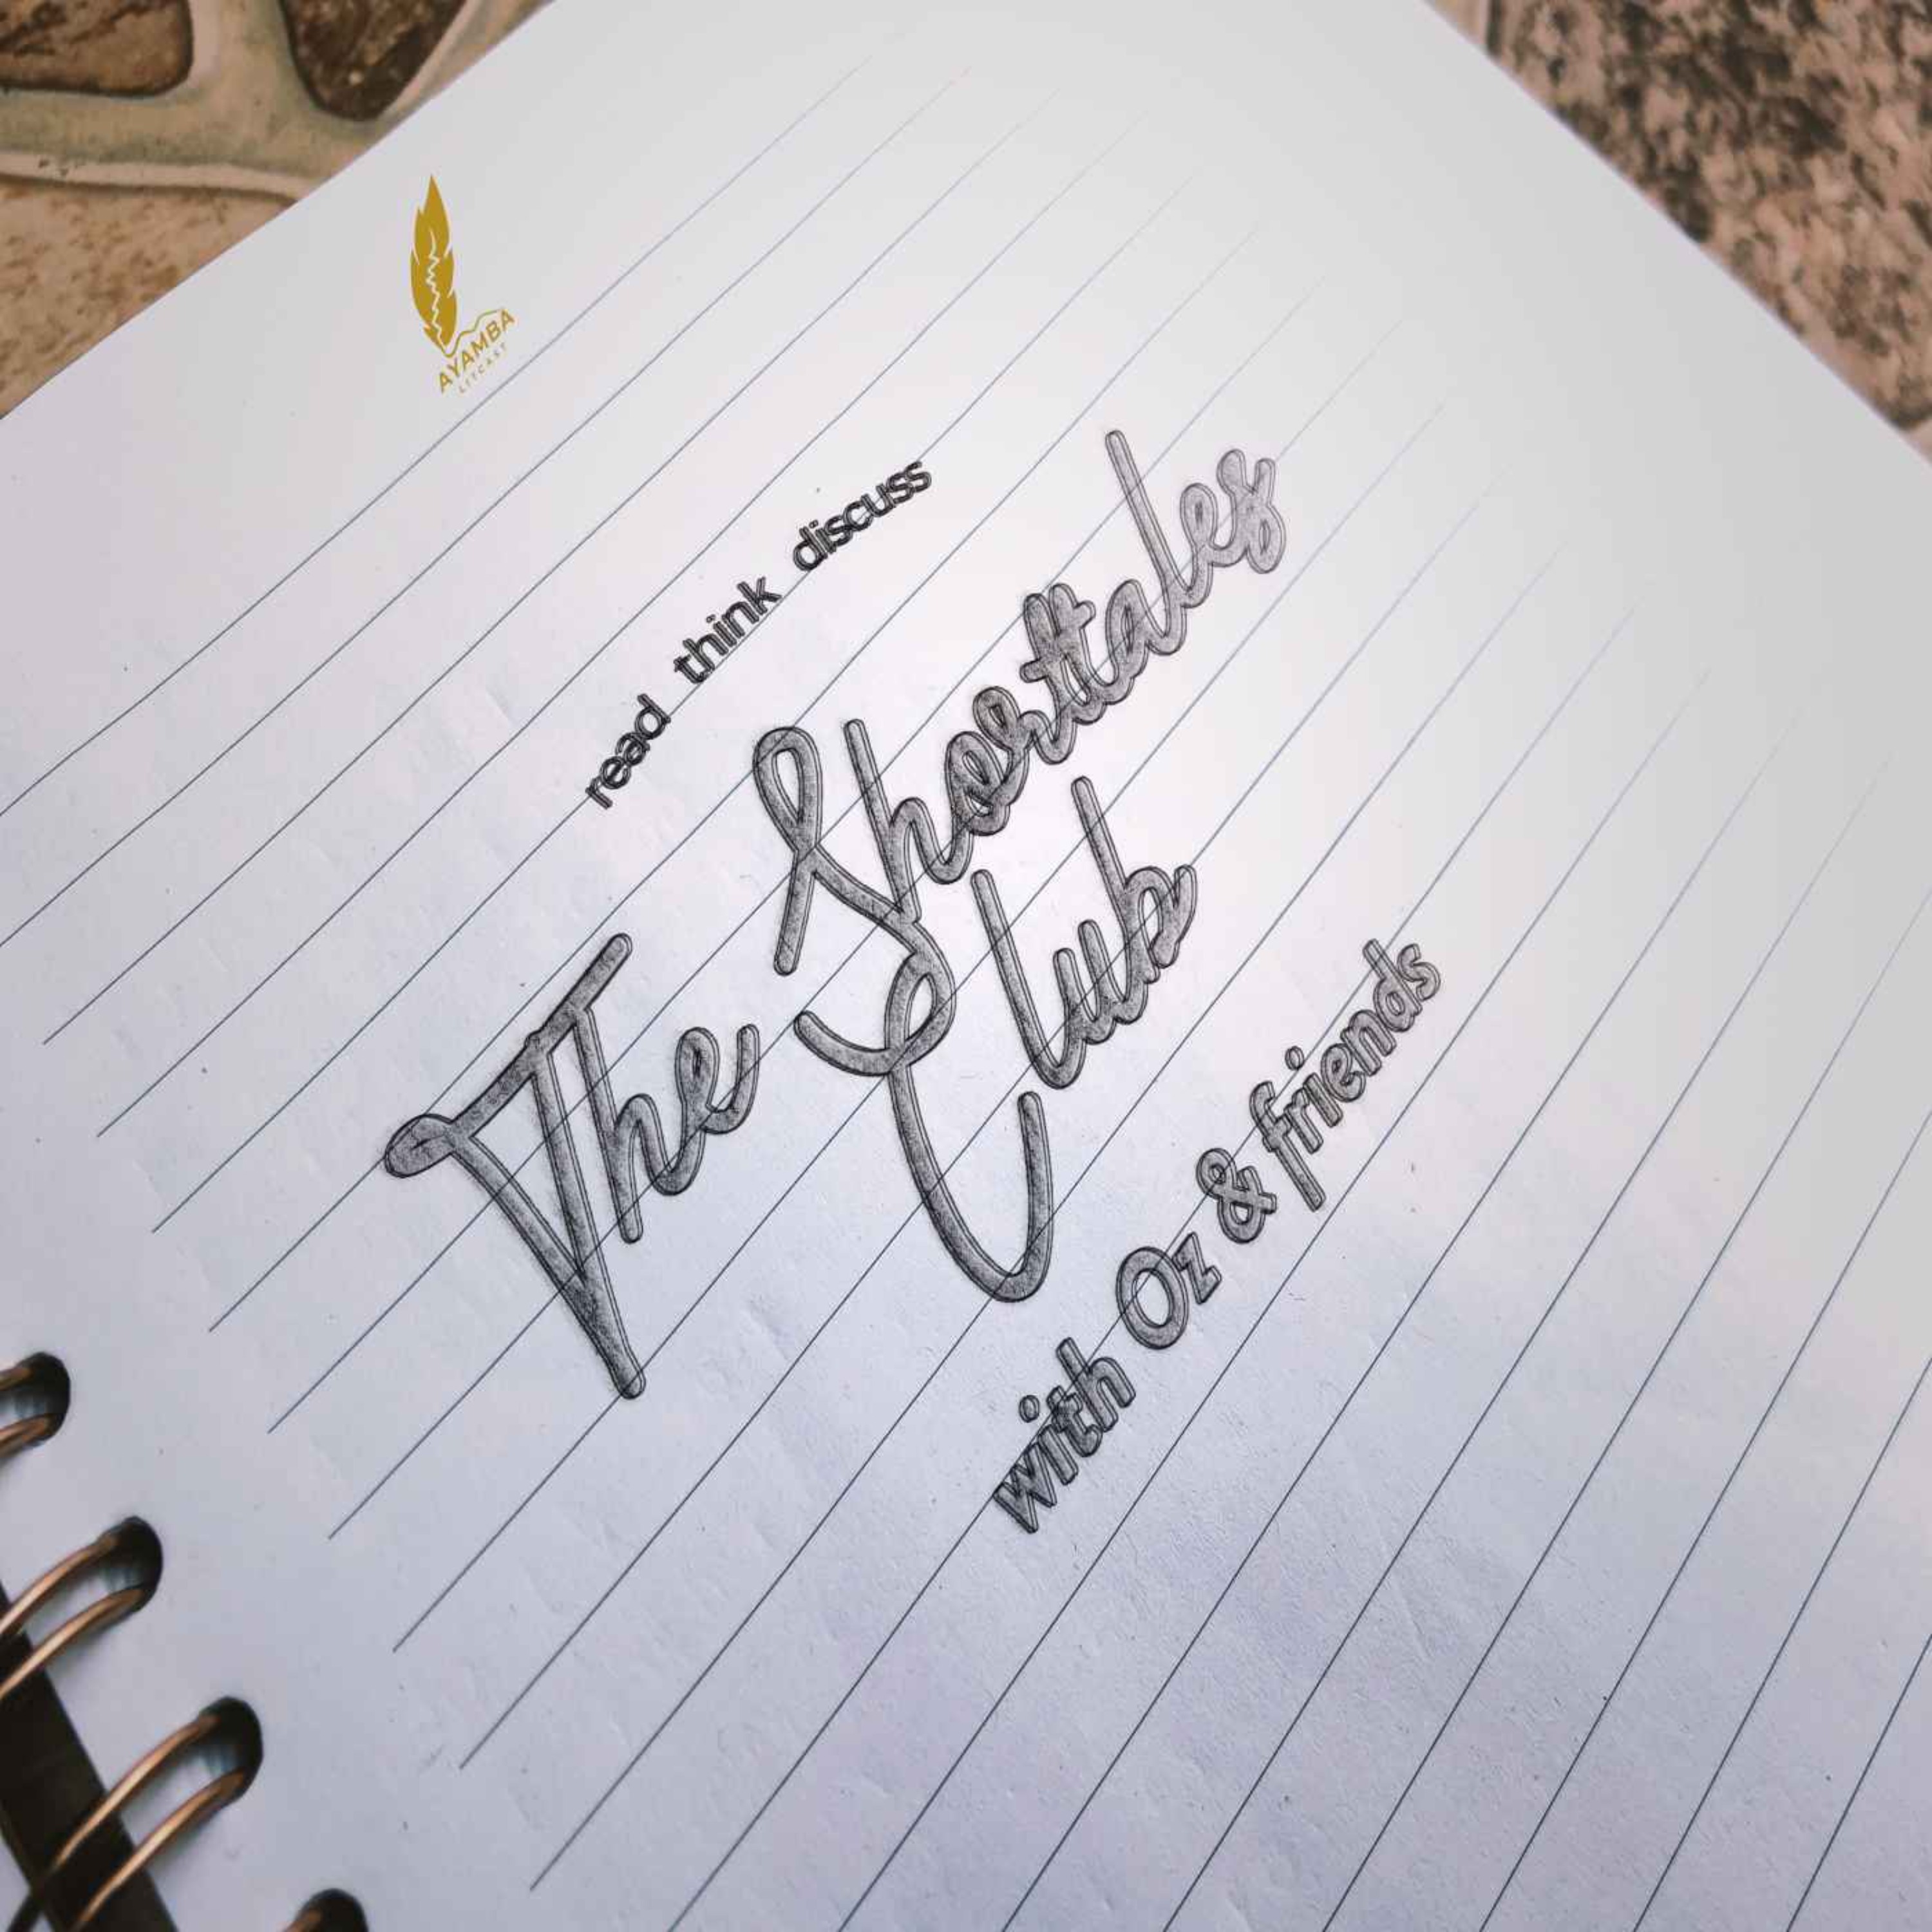 AYAMBA
LITCAST
read think discuss
The Shorttales
Club
with Oz & friends